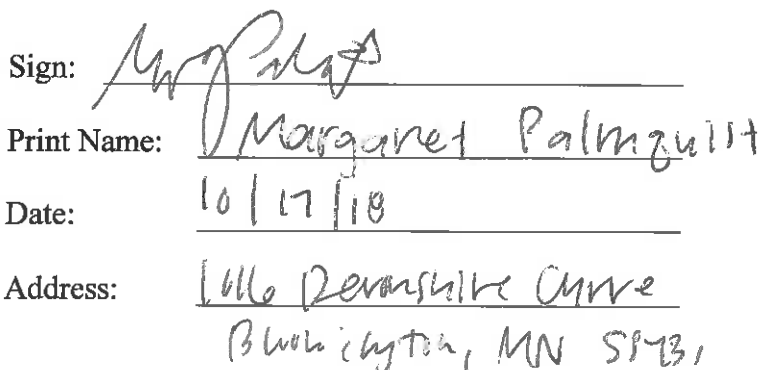 Sign:
Print Name: Margaret Palmquist
Date: 10/17/18
Address: Devonshire Curve
Bloomington, MN